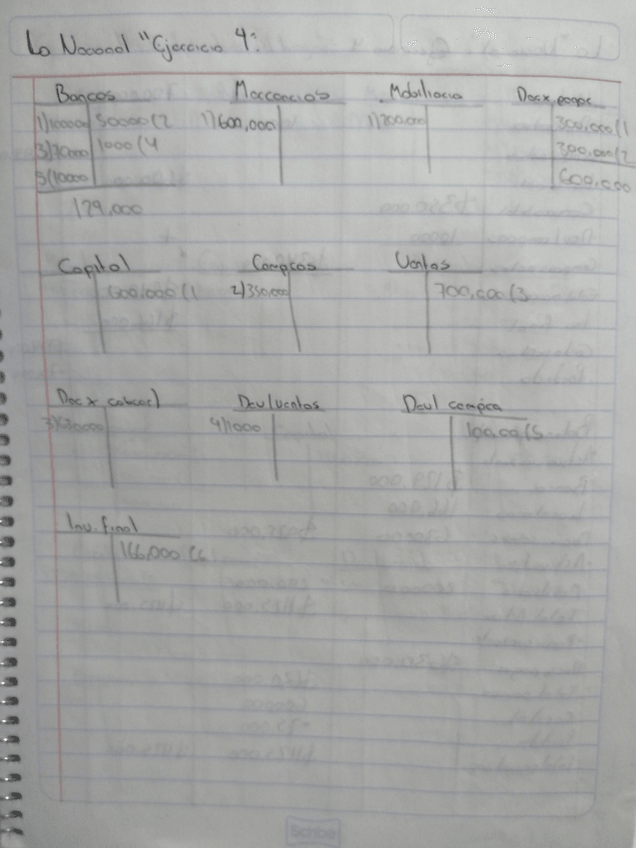 La Nacional "Ejercicio 4:
Bancos Mercancías Mobiliario Doc x pagar
1) 100000 50000 (2 1) 600,000 1) 200,000 300,000 (1
3) 70000 1000 (4 300,000 (2
5) 10000 600,000
129,000
Capital Compras Ventas
600,000 (1 2) 350,000 700,000 (3
Doc x cobrar Dev/ventas Devl compra
3) 630000 4) 1000 10000 (5
Inv. final
166,000 (6
Scribe